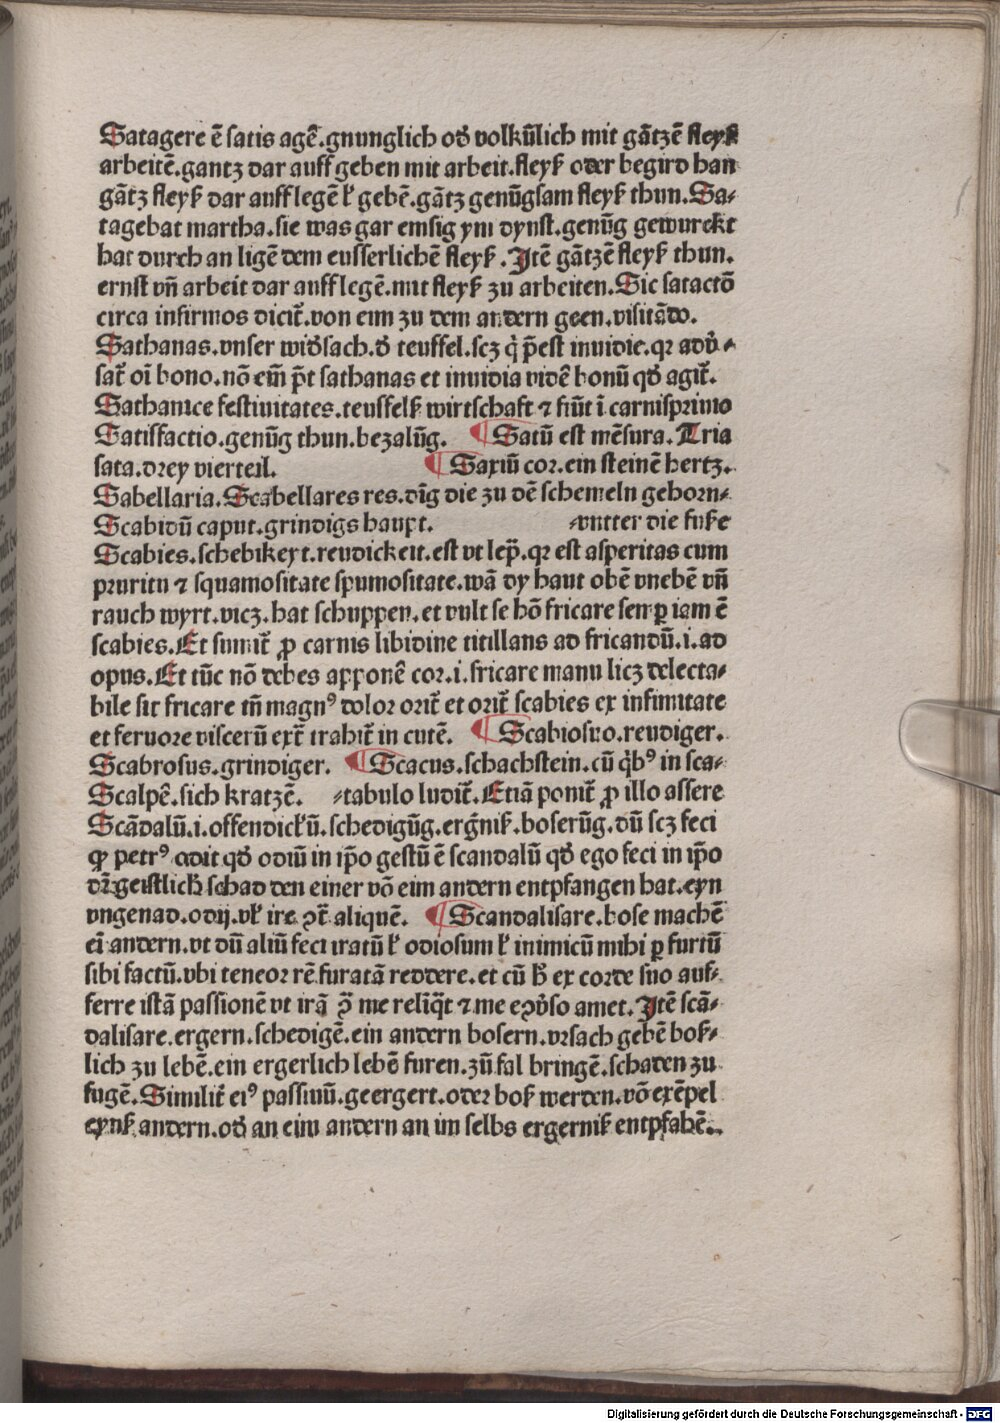 Satagere ē satis agē̄.gnunglich od̄ volkūlich mit gātzē fleyß
arbeitē.gantz dar auff geben mit arbeit.fleyß oder begird han
gātz fleyß dar auff legē ł gebē.gātz genūgsam fleyß thun.Sa-
tagebat martha.sie was gar emsig ym dynst.genūg gewurckt
hat durch an ligē dem eusserlichē fleyß.Jtē gātzē fleyß thun.
ernst vn̄ arbeit dar auff legē.mit fleyß zu arbeiten.Sic satactō
circa infirmos dicit̄.von eim zu dem andern geen.visitādo.
Sathanas.vnser wid̄sach.d̄ teuffel.scꝫ q̇ p̄est inuidie.qꝛ adů-
sat̄ oī bono.nō eīm p̄t sathanas et inuidia vidē bonū qđ agit̄.
Sathanice festiuitates.teuffelß wirtschaft ⁊ fiūt ī carnispriuio
Satisfactio.genūg thun.bezalūg. ¶ Satū est mēsura.Tria
sata.drey vierteil. ¶ Saxiū cor.ein steinē hertz.
Sabellaria.Scabellares res.dīg die zu dē schemeln gehorn-
Scabidū caput.grindigs haupt. -vntter die fuße
Scabies.schebikeyt.reudickeit.est vt lep̄.qꝛ est asperitas cum
pruritu ⁊ squamositate spumositate.wā dy haut obē vnebē vn̄
rauch wyrt.vicꝫ.hat schuppen.et vult se hō fricare semꝑ iam ē
scabies.Et sumit̄ ꝓ carnis libidine titillans ad fricandū.i.ad
opus.Et tūc nō debes apponē cor.i.fricare manu licꝫ delecta-
bile sit fricare tn̄ magnꝰ dolor orit̄ et orit̄ scabies ex infimitate
et feruore viscerū ext̄ trahit̄ in cutē. ¶ Scabiosuo.reudiger.
Scabrosus.grindiger. ¶ Scacus.schachstein.cū q̇bꝰ in sca-
Scalpē.sich kratzē. -tabulo ludit̄.Etiā ponit̄ ꝓ illo assere
Scādalū.i.offendickl̄ū.schedigūg.ergniß.boserūg.dū scꝫ feci
ꝙ petrꝰ odit qđ odiū in ip̄o gestū ē scandalū qđ ego feci in ip̄o
dr̄.geistlich̄ schad den einer vō eim andern entpfangen hat.eyn
vngenad.odij.vł ire ꝯt̄ aliquē. ¶ Scandalisare.bose machē
eī andern.vt dū aliū feci iratū ł odiosum ł inimicū mihi ꝑ furtū
sibi factū.vbi teneor rē furatā reddere.et cū ħ ex corde suo auf-
ferre istā passionē vt irā ꝯ̄ me reliq̄t ⁊ me eꝯůso amet.Jtē scā-
dalisare.ergern.schedigē.ein andern bosern.vrsach gebē boß-
lich zu lebē.ein ergerlich lebē furen.zū fal bringē.schaden zu
fugē.Similit̄ eiꝰ passiuū.geergert.oder boß werden.vō exēpel
eynß andern.od̄ an eim andern an im selbs ergerniß entpfahē.

Digitalisierung gefördert durch die Deutsche Forschungsgemeinschaft - DFG